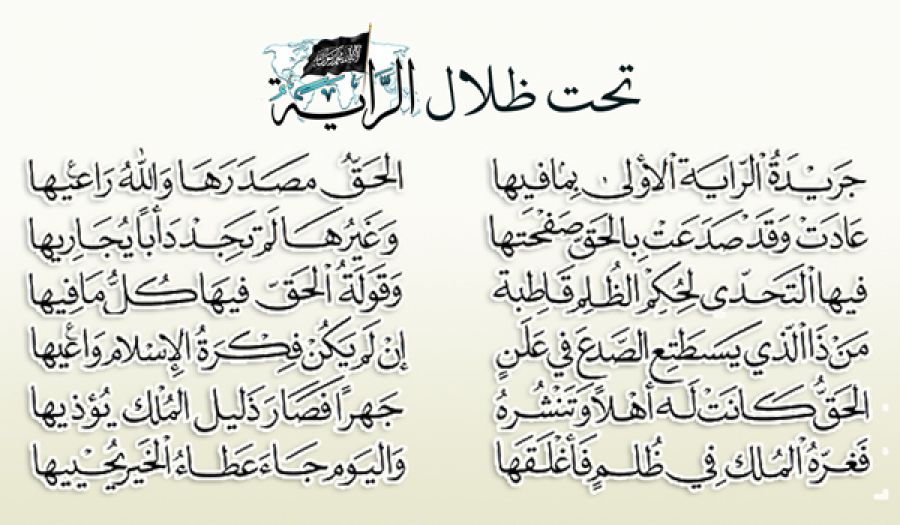 تحت ظلال الراية
جَرِيْدَةُ الْرّايَة الأولىٰ بِمَافيها الحَقُّ مصدَرَهَا وَاللهُ رَاعيها
عَادَتْ وَقَدْ صَدَعَتْ بِالحَقِ صَفْحَتها وَغَيْرُهَا لَمْ تَجِدْ دَأباً يُجَارِيها
فيها الْتَحَدّى لِحُكمِ الظُلِمِ قَاطِبة وَقَولَةُ الْحَقّ فيهَا كُلُّ مَافِيها
مَنْ ذَا الّذي يَسَطَتِع الصَّدعَ في عَلَنٍ إنْ لَم يَكُنْ فِكْرَةُ الإِسْلام وَاعيها
الحَقُّ كَانَتْ لَه أهْلاً وَتَنْشُرهُ جَهراً فَصَارَ ذَليل المُلْك يُؤذيها
فَغرّهُ الْمُلك فِي ظُلمٍ فَأغْلَقَهَا وَاليَوم جَاءَ عَطَاءُ الْخَير يُحْيِيها